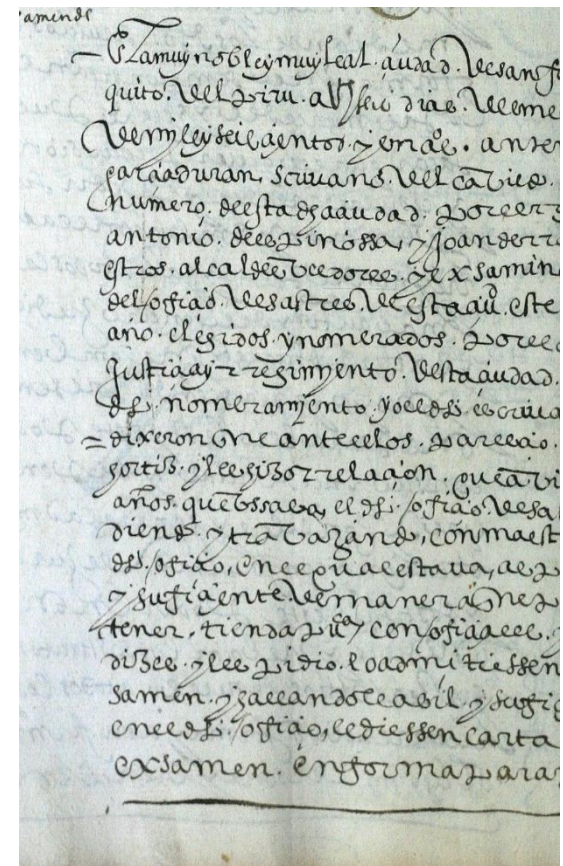 samen de
En la muy noble y muy leal ciudad de san fr
quito del piru. a diez dias del me
de mill y seiscientos y un aº. ante
duran, scriuano del cauildo
numero, de esta dha ciudad. parecier
antonio de espinossa, y joan de rr
estros. alcaldes veedores y exsamin
del offiçio de sastres de esta çiu. este
año. elegidos y nombrados. por el
Justiçia y rregimyento desta çiudad
dho nombramyento yo el dho escriua
dixeron que ante ellos. pareçio
hortiz. y les hizo rrelaçion. que auia
años. que ussaua, el dho offiçio de sa
diendo y trauaxando, con maest
dho offiçio, en el qual estaua, auil
y sufiçiente de manera que p
tener. tienda puca y con offiçiales, y
dizes. y les pidio. lo admitiessen
samen. y hallandole abil. y sufiçi
en el dho offiçio, le diessen carta
exsamen. en forma para